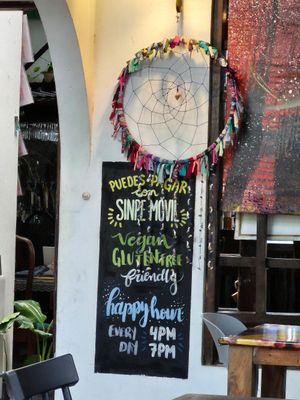 PUEDES PAGAR
con
SINPE MÓVIL
Vegan
GLUTEN FREE
friendly
happy hour
EVERY 4PM
DAY 7PM